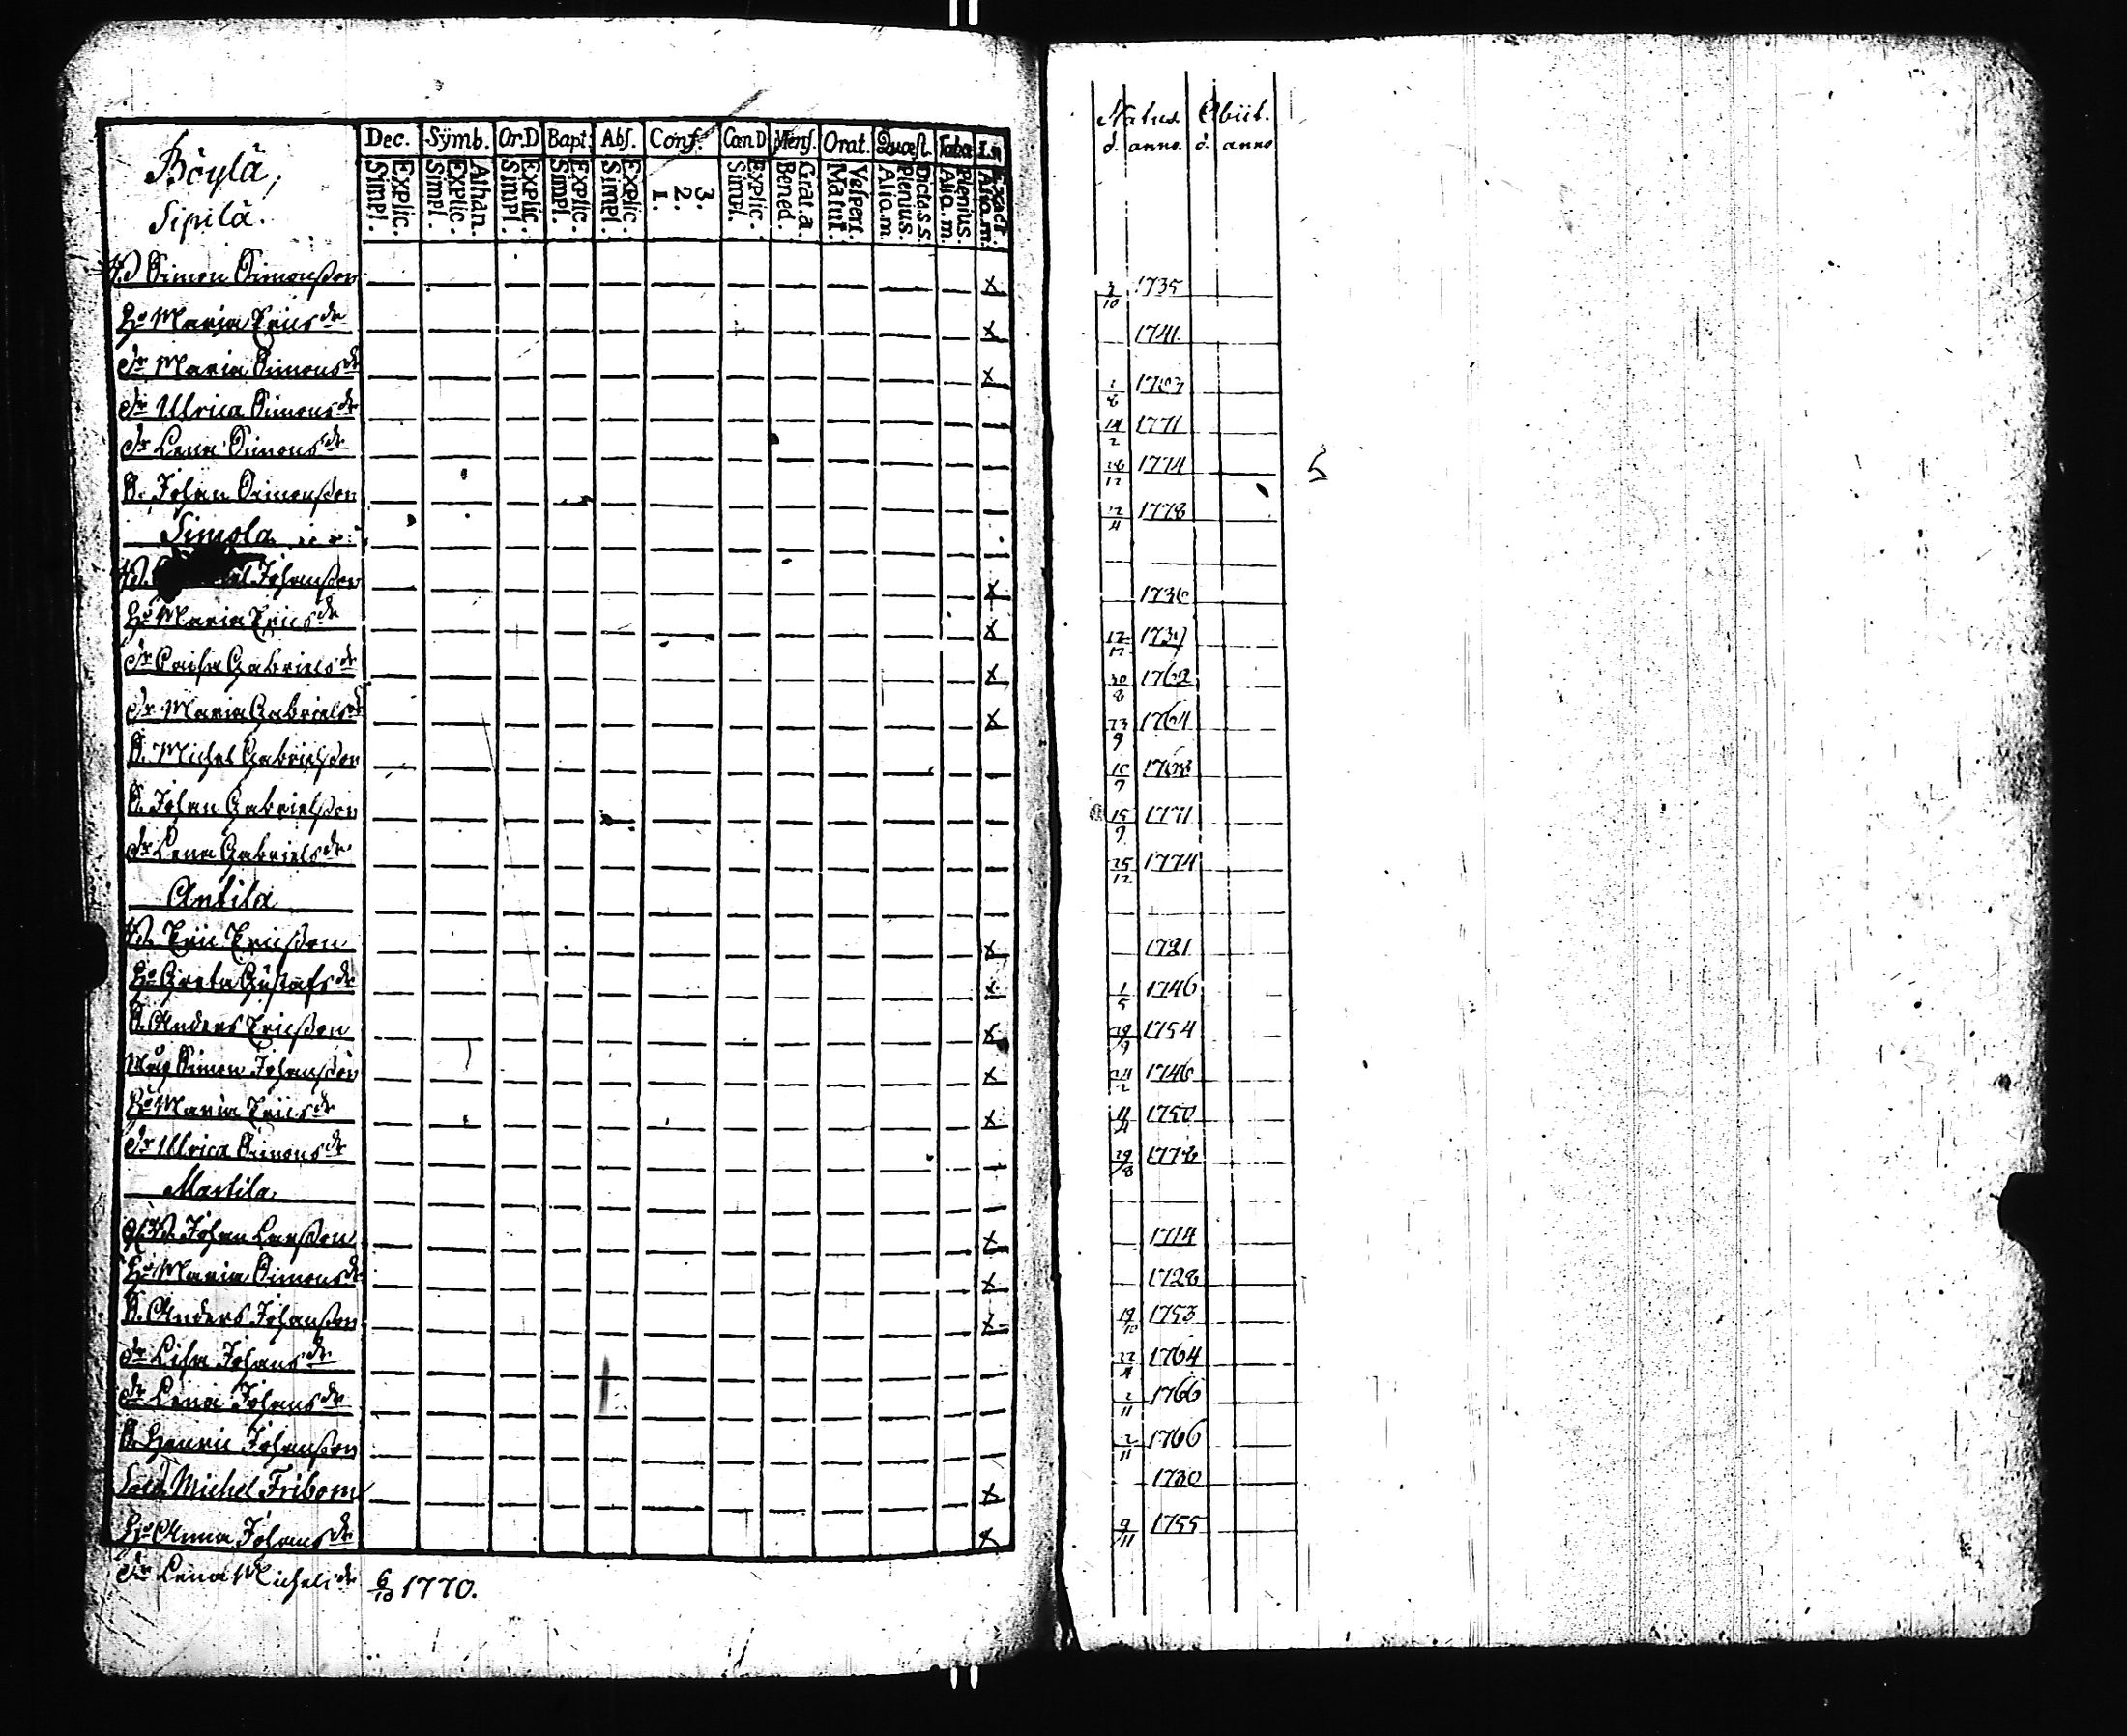 Böylä,
Sipilä.
Dec. Sÿmb. Or.D Bapt. Abs. Conf. Can.D Mens. Orat. Quæst. Taba
Simpl. Explic. Simpl. Explic. Athan. Simpl. Explic. Simpl. Explic. Simpl. Explic. 1. 2. 3. Simpl. Explic. Bened. Grat.a. Matut. Vespert. Alio.m. Plenius. Dicta.s.s. Alio.m. Plenius. Alio.m. Exact.
Simon Simonsson x
Ho Maria Erics dr x
dr Maria Simons dr x
dr Ulrica Simons dr
dr Lena Simons dr
S. Johan Simonsson
Simola
Johansson x
Ho Maria Erics dr x
dr Caisa Gabriels dr x
dr Maria Gabriels dr x
S. Michel Gabrielsson
S. Johan Gabrielsson
dr Lena Gabriels dr
Antila
Eric Ericsson x
Ho Greta Gustafs dr x
S. Anders Ericsson x
Måg Simon Johansson x
Ho Maria Erics dr x
dr Ulrica Simons dr
Martila
Johan Larsson x
Ho Maria Simons dr x
S. Anders Johansson x
dr Lisa Johans dr
dr Lena Johans dr
S. Henric Johansson
Sold. Michel Fribom x
Ho Anna Johans dr x
dr Lena Michels dr 6/10 1770.
Natus. Obiit.
d. anno. d. anno
3/10 1735
1741.
1/8 1763
14/2 1771
26/12 1774
12/4 1778
1736
17/12 1737
30/8 1762
23/9 1764
10/7 1768
15/9 1771
25/12 1774
1721
1/5 1746
29/9 1754
24/2 1746
11/4 1750
29/8 1778
1714
1728
19/10 1753
22/4 1764
2/11 1766
2/11 1766
1730
9/11 1755